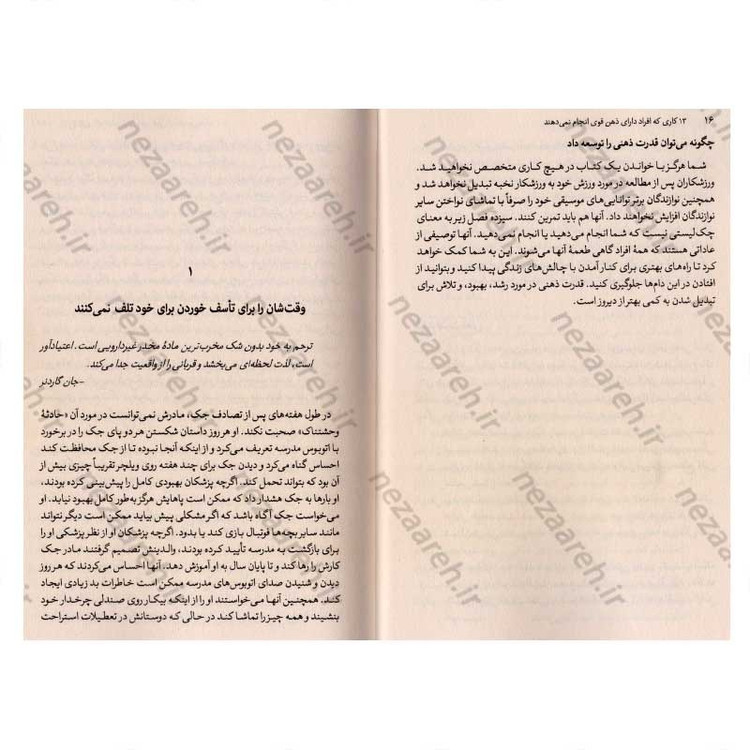 ۱۶ ۱۳ کاری که افراد دارای ذهن قوی انجام نمی‌دهند
چگونه می‌توان قدرت ذهنی را توسعه داد
شما هرگز با خواندن یک کتاب در هیچ کاری متخصص نخواهید شد.
ورزشکاران پس از مطالعه در مورد ورزش خود به ورزشکار نخبه تبدیل نخواهد شد و
همچنین نوازندگان برتر توانایی‌های موسیقی خود را صرفاً با تماشای نواختن سایر
نوازندگان افزایش نخواهند داد. آنها هم باید تمرین کنند. سیزده فصل زیر به معنای
چک‌لیستی نیست که شما انجام می‌دهید یا انجام نمی‌دهید. آنها توصیفی از
عاداتی هستند که همهٔ افراد گاهی طعمهٔ آنها می‌شوند. این به شما کمک خواهد
کرد تا راه‌های بهتری برای کنار آمدن با چالش‌های زندگی پیدا کنید و بتوانید از
افتادن در این دام‌ها جلوگیری کنید. قدرت ذهنی در مورد رشد، بهبود، و تلاش برای
تبدیل شدن به کمی بهتر از دیروز است.
۱
وقت‌شان را برای تأسف خوردن برای خود تلف نمی‌کنند
ترحم به خود بدون شک مخرب‌ترین مادهٔ مخدر غیردارویی است. اعتیادآور
است، لذت لحظه‌ای می‌بخشد و قربانی را از واقعیت جدا می‌کند.
-جان گاردنر
در طول هفته‌های پس از تصادف جک، مادرش نمی‌توانست در مورد آن «حادثهٔ
وحشتناک» صحبت نکند. او هر روز داستان شکستن هر دو پای جک را در برخورد
با اتوبوس مدرسه تعریف می‌کرد و از اینکه آنجا نبوده تا از جک محافظت کند
احساس گناه می‌کرد و دیدن جک برای چند هفته روی ویلچر تقریباً چیزی بیش از
آن بود که بتواند تحمل کند. اگرچه پزشکان بهبودی کامل را پیش‌بینی کرده بودند،
او بارها به جک هشدار داد که ممکن است پاهایش هرگز به‌طور کامل بهبود نیابد. او
می‌خواست جک آگاه باشد که اگر مشکلی پیش بیاید ممکن است دیگر نتواند
مانند سایر بچه‌ها فوتبال بازی کند یا بدود. اگرچه پزشکان او از نظر پزشکی او را
برای بازگشت به مدرسه تأیید کرده بودند، والدینش تصمیم گرفتند مادر جک
کارش را رها کند و تا پایان سال به او آموزش دهد. آنها احساس می‌کردند که هر روز
دیدن و شنیدن صدای اتوبوس‌های مدرسه ممکن است خاطرات بد زیادی ایجاد
کند. همچنین آنها می‌خواستند او را از اینکه بیکار روی صندلی چرخدار خود
بنشیند و همه چیز را تماشا کند در حالی که دوستانش در تعطیلات استراحت
nezaareh.ir
nezaareh.ir
nezaareh.ir
nezaareh.ir
nezaareh.ir
nezaareh.ir
nezaareh.ir
nezaareh.ir